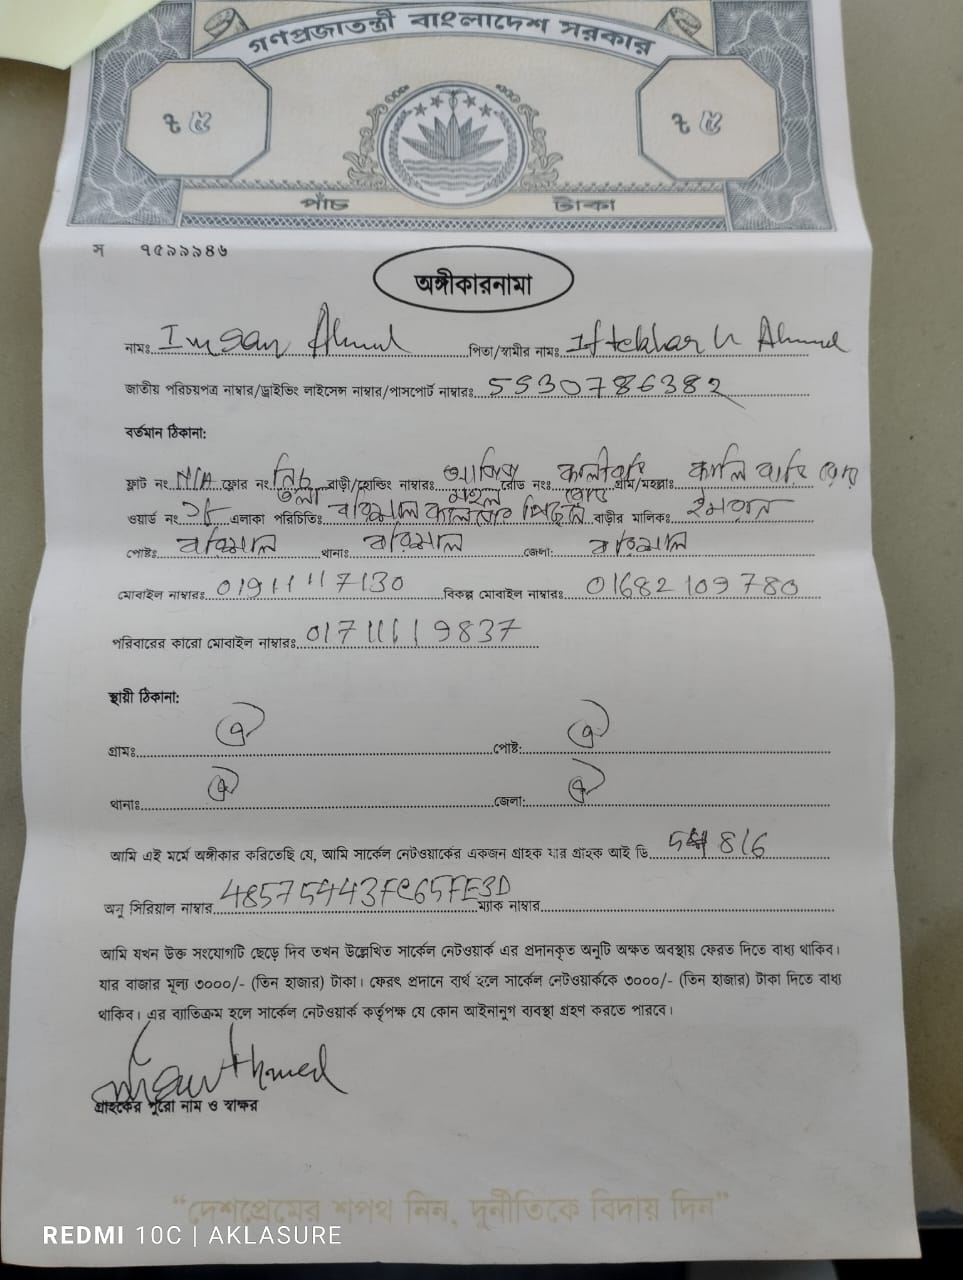 গণপ্রজাতন্ত্রী বাংলাদেশ সরকার
৳ ৫ ৳ ৫
পাঁচ টাকা
স ৭৫৯৯৯৪৬
অঙ্গীকারনামা
নামঃ Imran Ahmed পিতা/স্বামীর নামঃ Iftekhar U Ahmed
জাতীয় পরিচয়পত্র নাম্বার/ড্রাইভিং লাইসেন্স নাম্বার/পাসপোর্ট নাম্বারঃ 5530786382
বর্তমান ঠিকানা:
ফ্লাট নং N/A ফ্লোর নং নিচ তলা বাড়ী/হোল্ডিং নাম্বারঃ মহল রোড নংঃ কালীবাড়ি রোড গ্রাম/মহল্লাঃ কালি বাড়ি রোড
ওয়ার্ড নং এলাকা পরিচিতিঃ বরিশাল কলেজের পিছনে বাড়ীর মালিকঃ ইমরান
পোষ্টঃ বরিশাল থানাঃ বরিশাল জেলা: বরিশাল
মোবাইল নাম্বারঃ 01911117130 বিকল্প মোবাইল নাম্বারঃ 01682109780
পরিবারের কারো মোবাইল নাম্বারঃ 01711119837
স্থায়ী ঠিকানা:
গ্রামঃ ঐ পোষ্ট: ঐ
থানাঃ ঐ জেলা: ঐ
আমি এই মর্মে অঙ্গীকার করিতেছি যে, আমি সার্কেল নেটওয়ার্কের একজন গ্রাহক যার গ্রাহক আই ডি 816
অনু সিরিয়াল নাম্বার 48575443FC65FE3D ম্যাক নাম্বার
আমি যখন উক্ত সংযোগটি ছেড়ে দিব তখন উল্লেখিত সার্কেল নেটওয়ার্ক এর প্রদানকৃত অনুটি অক্ষত অবস্থায় ফেরত দিতে বাধ্য থাকিব।
যার বাজার মূল্য ৩০০০/- (তিন হাজার) টাকা। ফেরৎ প্রদানে ব্যর্থ হলে সার্কেল নেটওয়ার্ককে ৩০০০/- (তিন হাজার) টাকা দিতে বাধ্য
থাকিব। এর ব্যতিক্রম হলে সার্কেল নেটওয়ার্ক কর্তৃপক্ষ যে কোন আইনানুগ ব্যবস্থা গ্রহণ করতে পারবে।
Imran Ahmed
গ্রাহকের পুরো নাম ও স্বাক্ষর
“দেশপ্রেমের শপথ নিন, দুর্নীতিকে বিদায় দিন”
REDMI 10C | AKLASURE